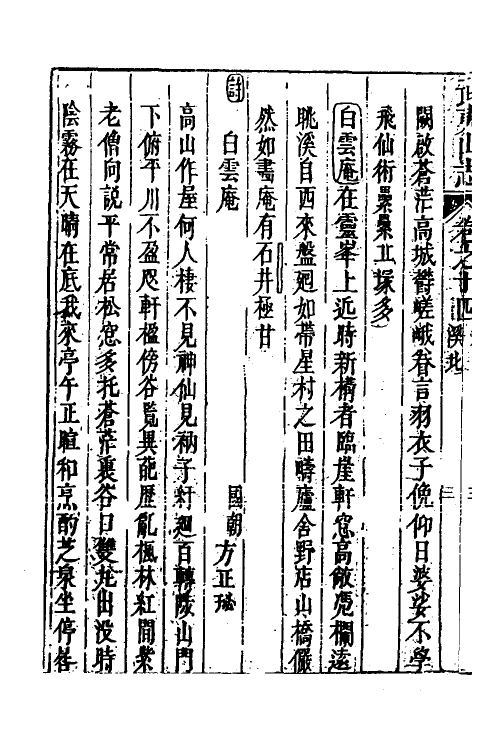 武夷山志 卷之十四 溪北
闕啟蒼茫高城鬱嵯峨眷言羽衣子俛仰日婆娑不學
飛仙術纍纍丘塚多
白雲庵在靈峯上近時新搆者臨崖軒窓高敞凭欄遠
眺溪自西來盤廻如帶星村之田疇廬舍野店山橋儼
然如畫庵有石井極甘
詩
白雲庵 國朝 方正瑤
高山作屋何人棲不見神仙見衲子紆廻百轉陵山門
下俯平川不盈咫軒楹傍谷覽異範歷亂楓林紅間紫
老僧向說平常居松窓多托蒼茫裏谷口雙龍出没時
陰霧在天晴在底我來亭午正暄和烹酌芝泉坐停